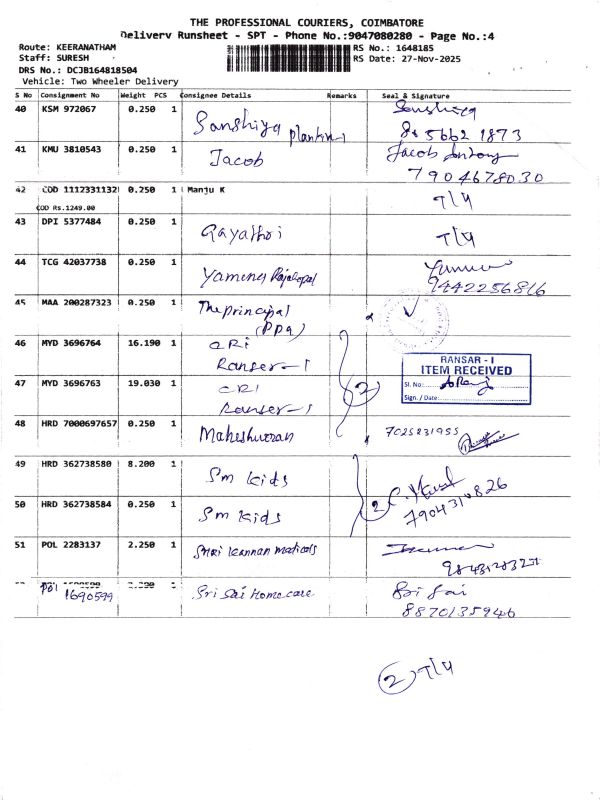 THE PROFESSIONAL COURIERS, COIMBATORE
Delivery Runsheet - SPT - Phone No.:9047080280 - Page No.:4
Route: KEERANATHAM RS No.: 1648185
Staff: SURESH RS Date: 27-Nov-2025
DRS No.: DCJB164818504
Vehicle: Two Wheeler Delivery
S No Consignment No Weight PCS Consignee Details Remarks Seal & Signature
40 KSM 972067 0.250 1 Sanshiya
41 KMU 3810543 0.250 1 Jacob Jacob Antony
7904678030
42 COD 1112331132 0.250 1 Manju K T/4
COD Rs.1249.00
43 DPI 5377484 0.250 1 Gayathri T/4
44 TCG 42037738 0.250 1 Yamuna Rajagopal
9442256816
45 MAA 200287323 0.250 1 The principal
(PPG)
46 MYD 3696764 16.190 1 CRI
Ranser-1
RANSAR - I
ITEM RECEIVED
Sl. No:
Sign. / Date:
47 MYD 3696763 19.030 1 CRI
Ranser-1
2
48 HRD 7000697657 0.250 1 Maheshwaran 7025831955
49 HRD 362738580 8.200 1 Sm kids
50 HRD 362738584 0.250 1 Sm kids 2
7904310826
51 POL 2283137 2.250 1 Shri Kannan medicals
POL 1690599 1 Sri Sai Home care Sri Sai
8870135946
2 T/4